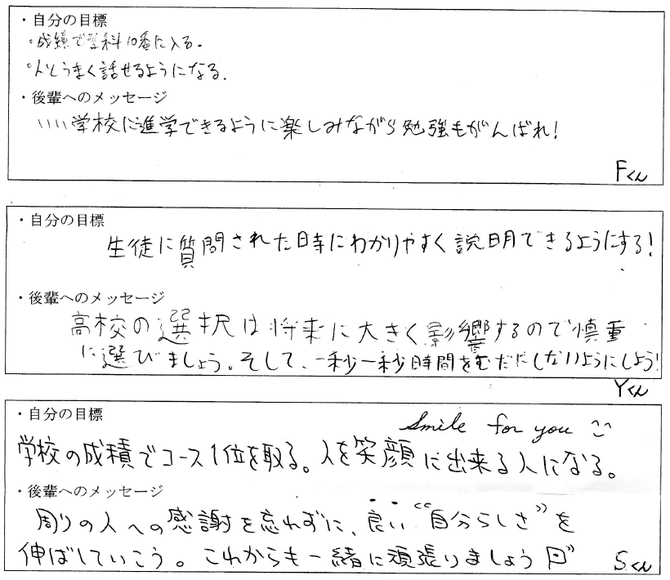 ・自分の目標
・成績で学科10番に入る。
・人とうまく話せるようになる。
・後輩へのメッセージ
いい学校に進学できるように楽しみながら勉強もがんばれ!
Fくん
・自分の目標
生徒に質問された時にわかりやすく説明できるようにする!
・後輩へのメッセージ
高校の選択は将来に大きく影響するので慎重
に選びましょう。そして、一秒一秒時間をむだにしないようにしよう!
Yくん
・自分の目標
Smile for you
学校の成績でコース1位を取る。人を笑顔に出来る人になる。
・後輩へのメッセージ
周りの人への感謝を忘れずに、良い“自分らしさ”を
伸ばしていこう。これからも一緒に頑張りましょう
Sくん